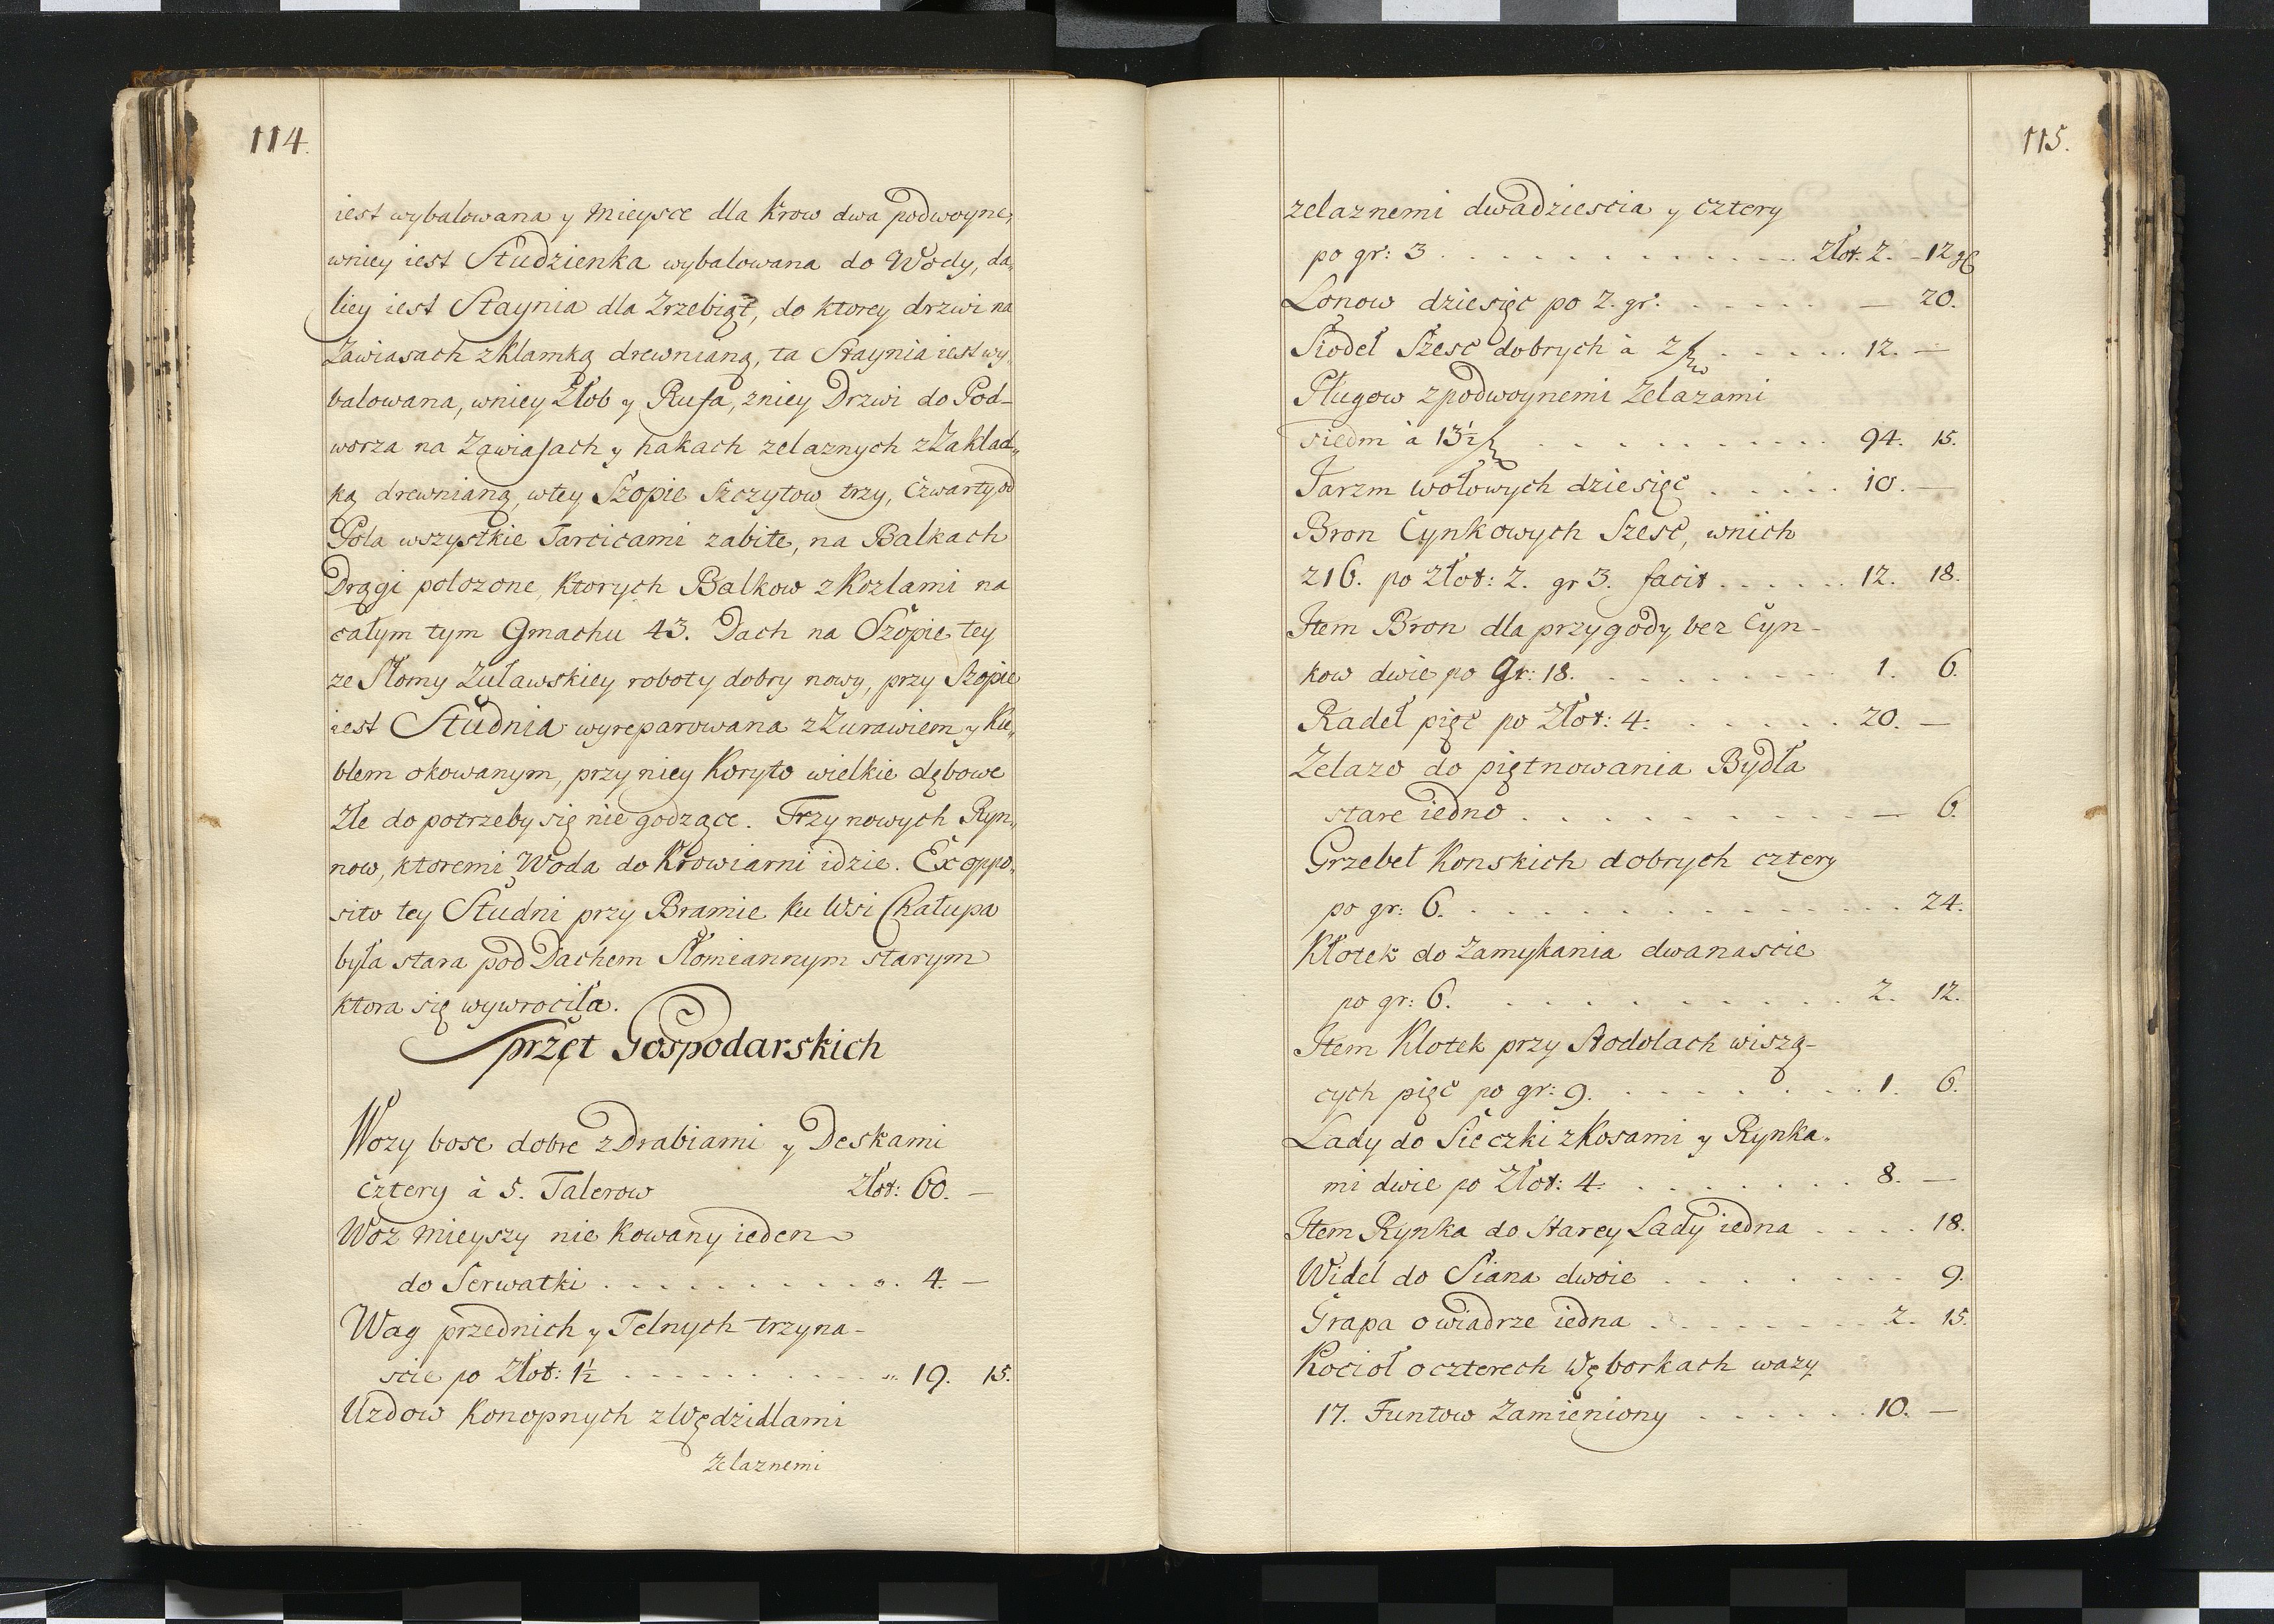 114.
iest wybalowana y Mieysce dla Krow dwa podwoyne,
wniey iest Studzienka wybalowana do Wody, da„
liey iest Staynia dla Zrzebiąt, do ktorey drzwi na
Zawiasach z Klamką drewnianą, ta Staynia iest wy„
balowana, wniey Złob y Rufa, zniey Drzwi do Pod-
worza na Zawiasach y hakach zelaznych z Zaklad„
ką drewnianą, wtey Szopie Szczytow trzy, Czwarty od
Pola wszystkie Tarcicami zabite, na Balkach
Drągi polozone, Ktorych Balkow z Kozlami na
całym tym Gmachu 43. Dach na Szopie tey
ze Słomy Zuławskiey roboty dobry nowy, przy Szopie
iest Studnia wyreparowana z Zurawiem y Ku„
błem okowanym, przy niey Koryto wielkie dębowe
Złe do potrzeby się nie godzące. Trzy nowych Ryn„
now, ktoremi Woda do Krowiarni idzie. Ex oppo„
sito tey Studni przy Bramie ku Wsi Chałupa
była stara pod Dachem Słomiannym starym
ktora się wywrociła.
Sprzęt Gospodarskich
Wozy bose dobre z Drabiami y Deskami
cztery à 5. Talerow Złot: 60. —
Woz mieyszy nie Kowany ieden
do Serwatki . . . . . . . . . . 4. —
Wag przednich y Telnych trzyna-
scie po Złot: 1½ . . . . . . . . . . 19. 15.
Uzdow Konopnych z Wędzidlami
Zelaznemi
115.
zelaznemi dwadziescia y cztery
po gr: 3 . . . . . . . . . . . . Złot. 2. - 12 gl
Lonow dziesięc po 2. gr. . . . . . . — 20.
Siodeł Szesc dobrych à 2 . . . . . 12. —
Pługow zpodwoynemi Zelazami
siedm à 13½ . . . . . . . . . . 94. 15.
Jarzm wołowych dziesięć . . . . . 10. —
Bron Cynkowych Szesć, wnich
216. po Złot: 2. gr 3. facit . . . . . . 12. 18.
Item Bron dla przygody bez Cyn-
kow dwie po Gr: 18. . . . . . . . . . 1. 6.
Radeł pięć po Złot: 4. . . . . . . 20. —
Zelazo do piętnowania Bydła
stare iedno . . . . . . . . . . . — 6.
Grzebeł Konskich dobrych cztery
po gr: 6. . . . . . . . . . . . . . . 24.
Kłotek do Zamykania dwanascie
po gr: 6. . . . . . . . . . . 2. 12.
Item Klotek przy Stodolach wiszą-
cych pięć po gr: 9. . . . . . . . . . 1. 6.
Lady do Sieczki z Kosami y Rynka„
mi dwie po Złot: 4. . . . . . . . . 8. —
Item Rynka do Starey Lady iedna . . . . 18.
Widel do Siana dwoie . . . . . . . . 9.
Grapa o wiadrze iedna . . . . . . . . 2. 15.
Kocioł o czterech Węborkach wazy
17. Funtow Zamieniony . . . . . . 10. —